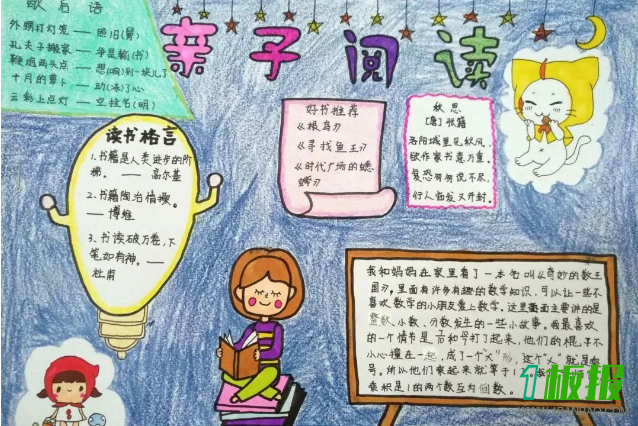 歇后语
外甥打灯笼——照旧(舅)
孔夫子搬家——净是输(书)
鞭炮两头点——想(响)到一块儿了
十月的萝卜——动(冻)了心
云彩上点灯——空挂名(明)
亲子阅读
读书格言
1、书籍是人类进步的阶
梯。——高尔基
2、书籍陶冶情操。
——博维
3、书读破万卷,下
笔如有神。——
杜甫
好书推荐
《根鸟》
《寻找鱼王》
《时代广场的蟋
蟀》
秋思
[唐]张籍
洛阳城里见秋风,
欲作家书意万重。
复恐匆匆说不尽,
行人临发又开封。
我和妈妈在家里看了一本书叫《奇妙的数王
国》。里面有许多有趣的数学知识,可以让一些不
喜欢数学的小朋友爱上数学。这里面主要讲的是
整数、小数、分数发生的一些小故事。我最喜欢
的一个情节是
和
打了起来,他们的棍子不
小心撞在一起,成了一个"X"形,这个"X"就是乘
号。所以他们乘起来就等于1
乘积是1的两个数互为倒数。
1板报